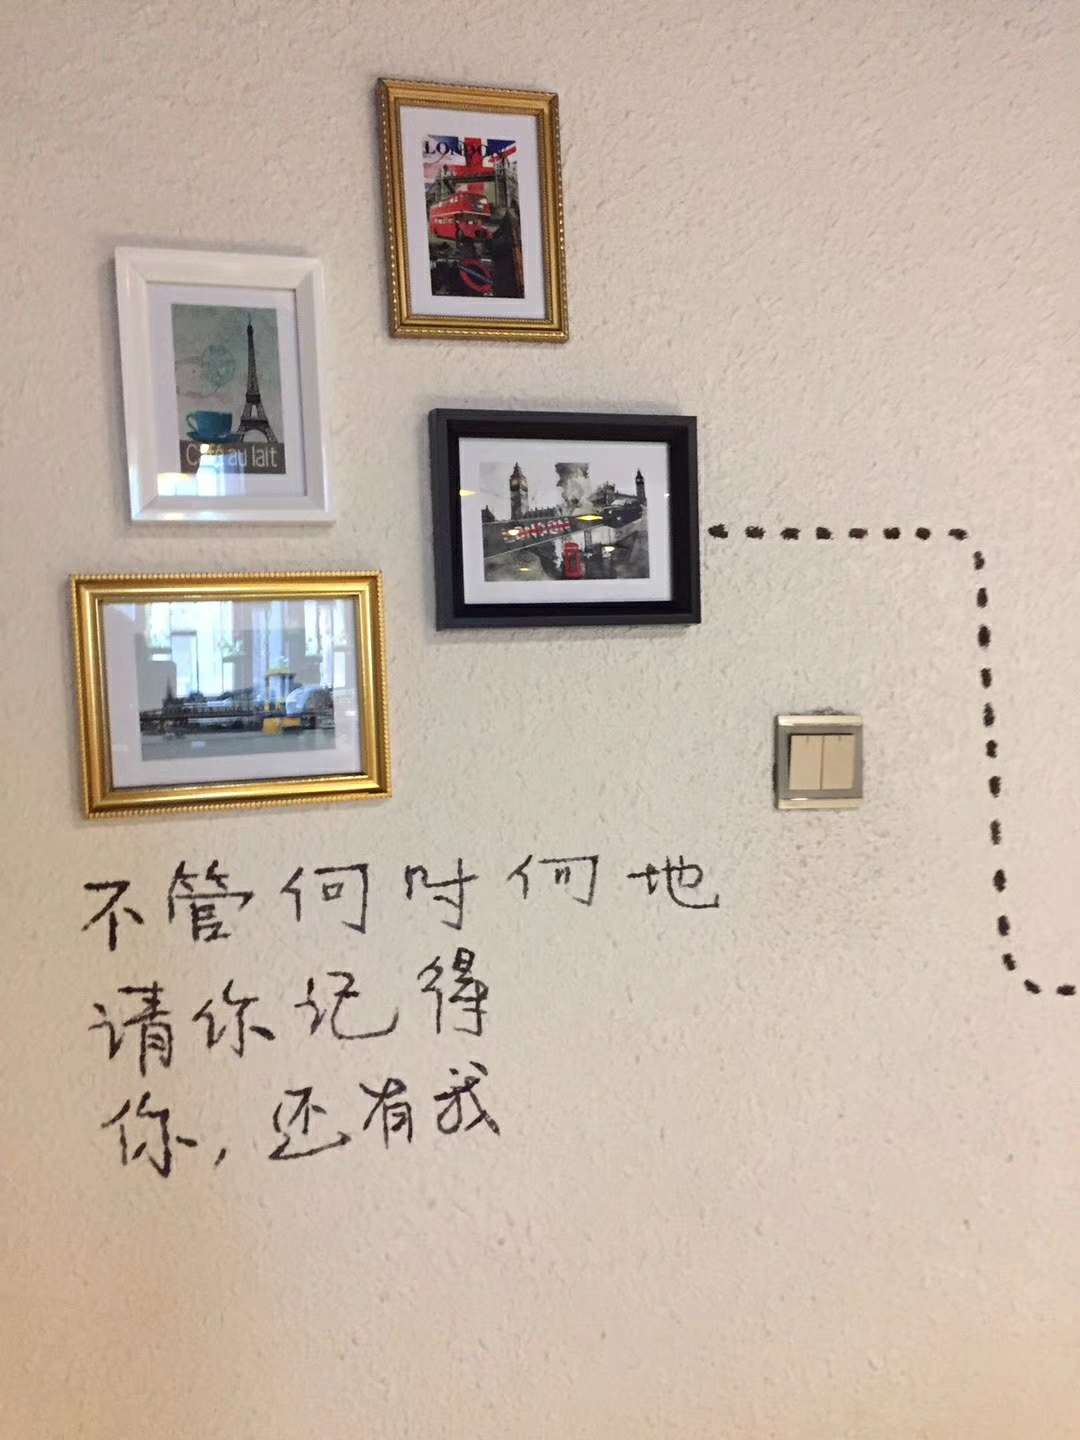 LONDON
Café au lait
LONDON
不管何时何地
请你记得
你，还有我